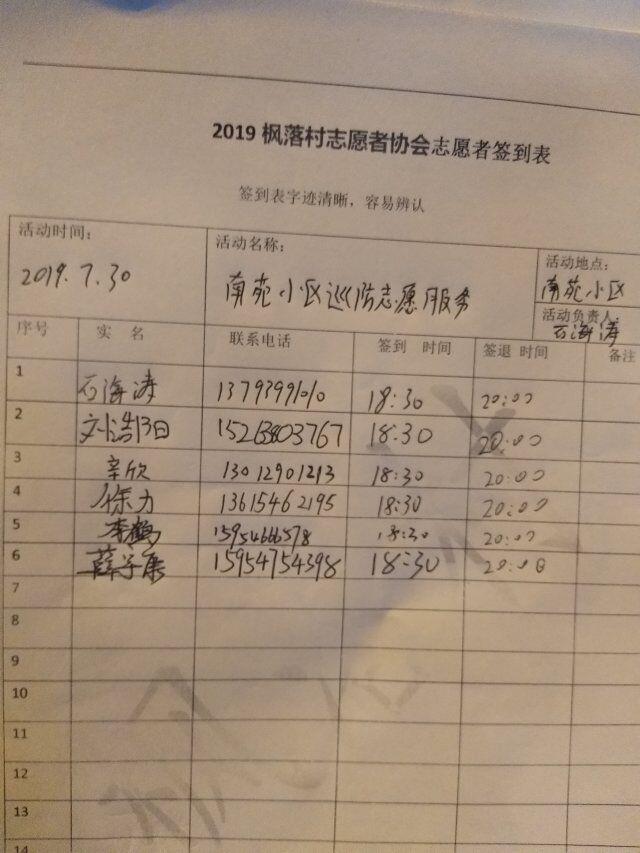 2019 枫落村志愿者协会志愿者签到表
签到表字迹清晰，容易辨认
活动时间： 活动名称： 活动地点：
2019.7.30 南苑小区巡防志愿服务 南苑小区
活动负责人：
石海涛
序号 实 名 联系电话 签到 时间 签退 时间 备注
1 石海涛 13793991010 18:30 20:00
2 刘浩 15213803767 18.30 20:00
3 辛欣 13012901213 18:30 20:00
4 徐力 13615462195 18:30 20:00
5 李鹤 15954666578 18:30 20:00
6 薛子康 15954754398 18:30 20:00
7
8
9
10
11
12
13
14